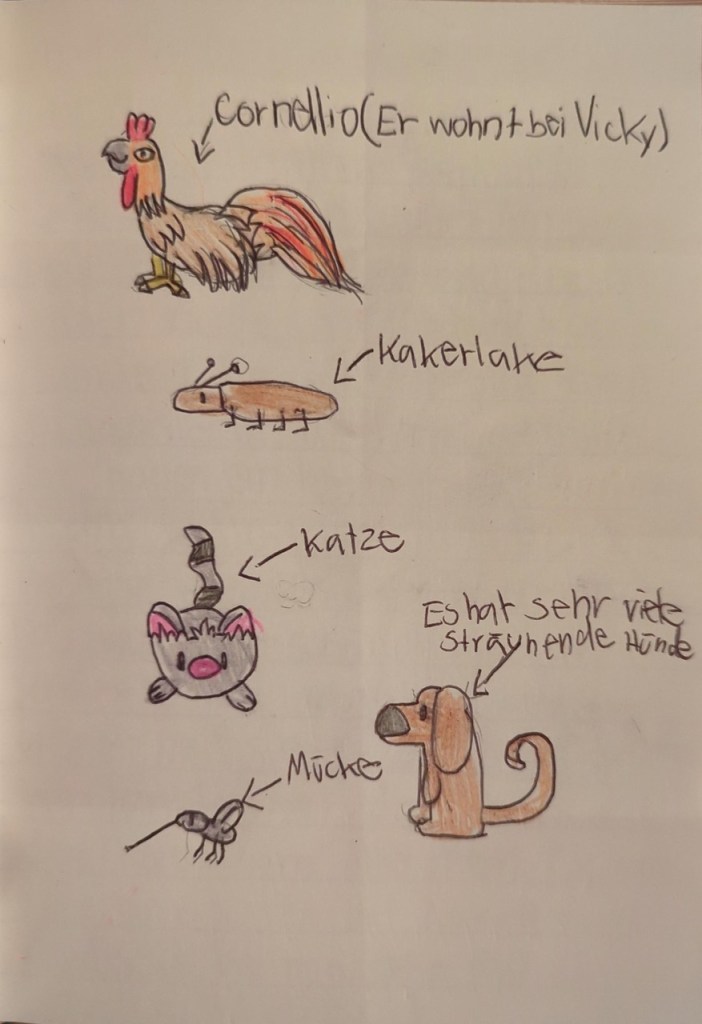 Cornellio (Er wohnt bei Vicky)
Kakerlake
Katze
Es hat sehr viele
Sträunende Hünde
Mücke